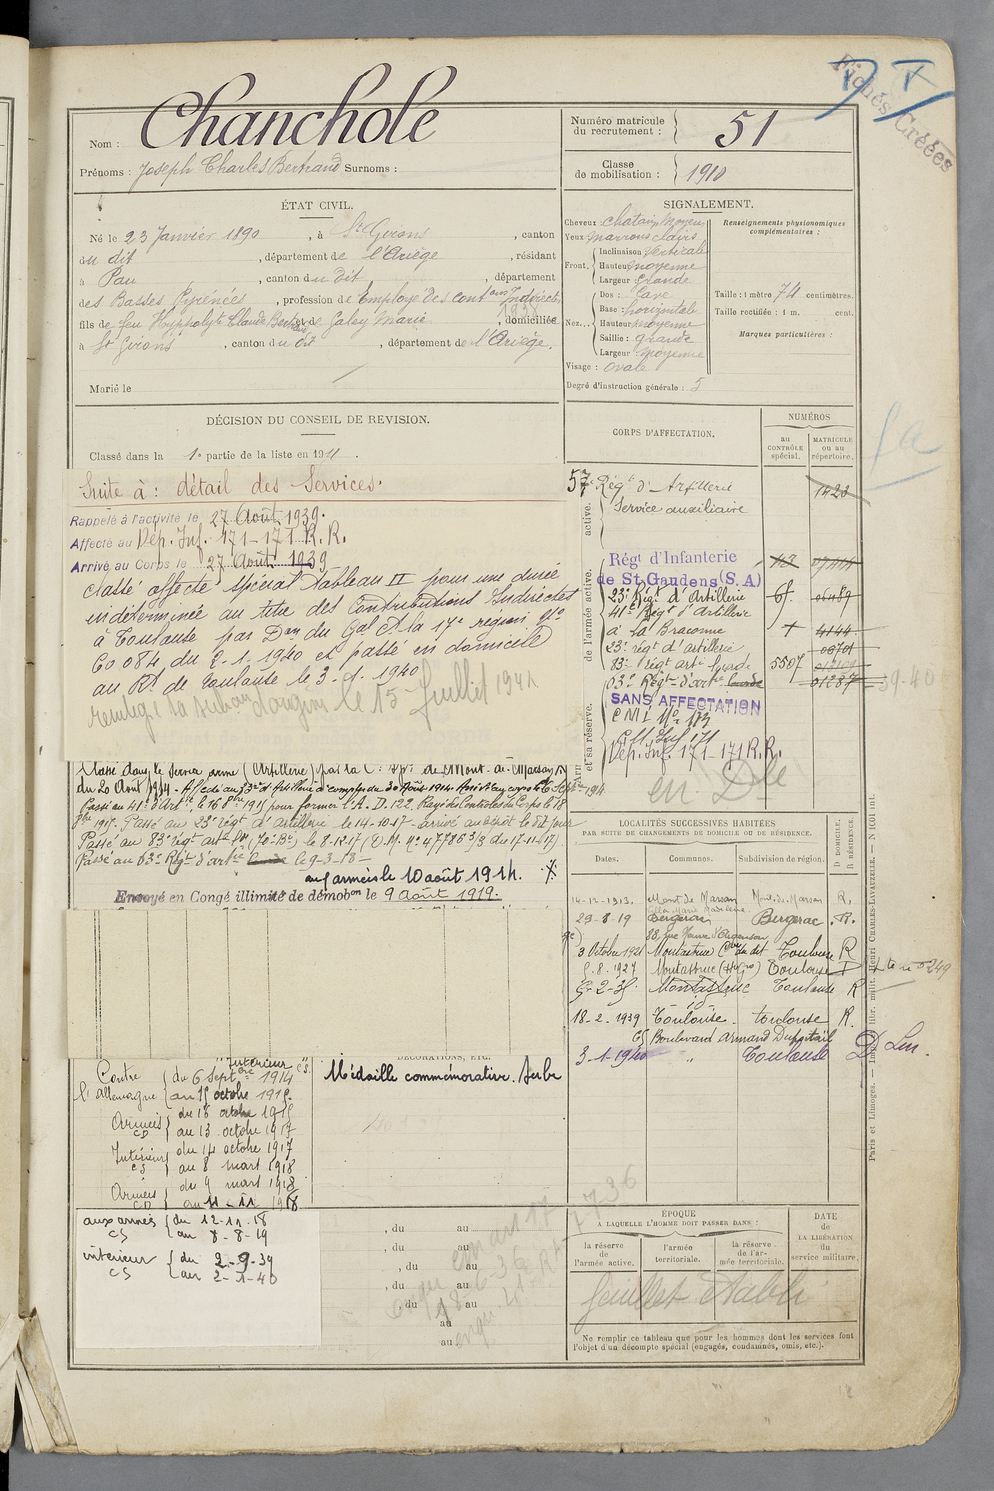 Fichés Créées
Nom : Chanchole
Prénoms : Joseph Charles Bertrand Surnoms :
Numéro matricule du recrutement : 51
Classe de mobilisation : 1910
ÉTAT CIVIL.
Né le 23 Janvier 1890, à St Girons, canton
du dit, département de l'Ariège, résidant
à Pau, canton du dit, département
des Basses Pyrénées, profession de Employé des contons Indirectes
1938
fils de feu Hyppolyte Claude Bertrand et de Galey Marie, domiciliée
à St Girons, canton du dit, département de l'Ariège.
Marié le
SIGNALEMENT.
Cheveux : Chatain Moyen
Yeux marrons clairs
Front, Inclinaison Verticale
Hauteur moyenne
Largeur Grande
Nez... Dos : Cave
Base : horizontale
Hauteur moyenne
Saillie : grande
Largeur moyenne
Visage : ovale
Degré d'instruction générale : 3
Renseignements physionomiques complémentaires :
Taille : 1 mètre 74 centimètres.
Taille rectifiée : 1 m. cent.
Marques particulières :
DÉCISION DU CONSEIL DE REVISION.
Classé dans la 1e partie de la liste en 1911
Suite à : détail des Services.
Rappelé à l'activité le 27 Août 1939.
Affecté au Dép. Inf. 171-171 R.R.
Arrivé au Corps le 27 Août 1939
classé affecté spécial tableau II pour une durée
indéterminée au titre des Contributions Indirectes
à Toulouse par Don du Gal Ct la 17e région No
60084 du 2-1-1940 et passé en domicile
au Rt de Toulouse le 3-1-1940
le 15 Juillet 1941
Classé dans le Service armé (Artillerie) par la C. de Mont-de-Marsan
du 20 Août 1914 - Affecté au 23e d'Artillerie à compter du 30 Août 1914 Arrivé au corps le 6 Septbre 1914
Passé au 41e d'Artie, le 16 8bre 1915 pour former l'A.D. 122. Rayé des Contrôles du Corps le 18
8bre 1917. Passé au 23e régt d'artillerie le 14-10-17 - arrivé au dépôt le dit jour
Passé au 83e régt art (70e Bie) le 8-12-17 (D.M. No 47786 3/3 du 17-11-17)
Passé au 63e Régt d'artie lourde le 9-3-18 -
aux armées le 10 août 1914.
Envoyé en Congé illimité de démobon le 9 Août 1919.
CORPS D'AFFECTATION.
NUMÉROS
au CONTRÔLE spécial.
MATRICULE ou au répertoire.
active.
57e Régt d'Artillerie 1423
Service auxiliaire
de l'armée active.
Régt d'Infanterie
de St Gaudens (S.A)
23e Régt d'Artillerie
41e Régt d'Artillerie
à la Braconne 4144
23e régt d'artillerie
83e régt artie lourde 5507
63e Régt d'artie lourde 01287
39-40
et sa réserve.
SANS AFFECTATION
CMI No 173
Dép. Inf. 171-171 R.R.
en Dle
LOCALITÉS SUCCESSIVES HABITÉES
PAR SUITE DE CHANGEMENTS DE DOMICILE OU DE RÉSIDENCE.
Dates.
Communes.
Subdivision de région.
D DOMICILE. R RÉSIDENCE.
14-12-1913. Mont de Marsan Mont-de-Marsan R.
29-8-19 Bergerac Bergerac R.
3 Octobre 1921 Montastruc Con du dit Toulouse R
8.8-1927 Montastruc (Hte Gne) Toulouse D
5-2-35. Montastruc Toulouse R
id
18-2-1939 Toulouse. Toulouse R.
65 Boulevard Armand Duportail
3-1-1940 " Toulouse D
DÉCORATIONS, ETC.
Médaille commémorative. Serbe
Contre l'Allemagne
Intérieur CS
du 6 Septbre 1914
au 15 octobre 1915.
Armées CD
du 16 octobre 1915
au 13 octobre 1917
Intérieur CS
du 14 octobre 1917
au 8 mars 1918
Armées CD
du 9 mars 1918
au 11-11 1918
aux armées CS
du 12-11-18
au 8-8-19
intérieur CS
du 2-9-39
au 2-1-40
, du au
, du au
, du au
, du au
, du au
au
au
ÉPOQUE
A LAQUELLE L'HOMME DOIT PASSER DANS :
la réserve de l'armée active.
l'armée territoriale.
la réserve de l'armée territoriale.
DATE de LA LIBÉRATION du service militaire.
feuillet établi
Ne remplir ce tableau que pour les hommes dont les services font
l'objet d'un décompte spécial (engagés, condamnés, omis, etc.).
Paris et Limoges. — Imp. et libr. milit. Henri CHARLES-LAVAUZELLE. — N 1001 int.